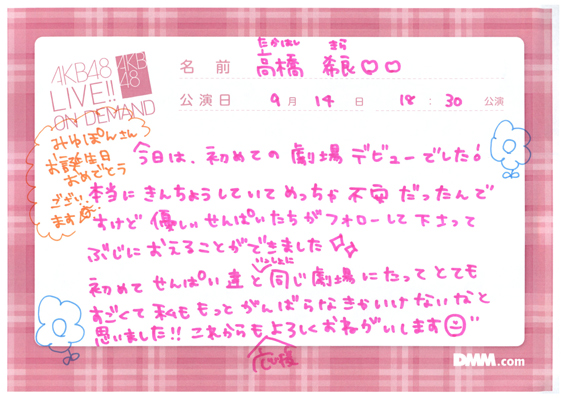 AKB48
LIVE!!
ON DEMAND
AKB
48
名前
たかはし きら
高橋 希良♡♡
公演日
9月14日 18:30公演
みゆぽんさん
お誕生日
おめでとう
ござい
ます
今日は、初めての劇場デビューでした!
本当にきんちょうしていてめっちゃ不安だったんで
すけど優しいせんぱいたちがフォローして下さって
ぶじにおえることができました
初めてせんぱい達といっしょに同じ劇場にたってとても
すごくて私ももっとがんばらなきゃいけないなと
思いました!!これからもよろしくおねがいします
応援
DMM.com